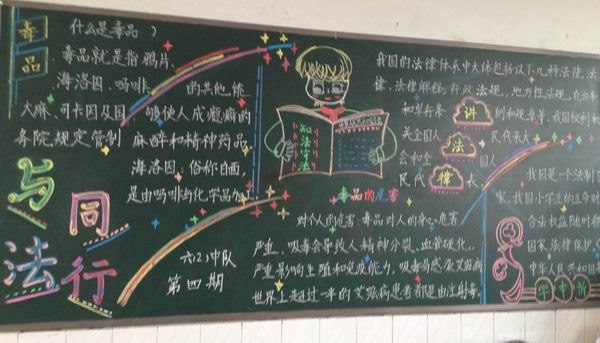 毒品
什么是毒品
毒品就是指鸦片、
海洛因、吗啡、
的其他能
大麻、可卡因及国
够使人成瘾癖的
务院规定管制
麻醉和精神药品
海洛因，俗称白面，
是由吗啡与化学品
与法
同行
六(2)中队
第四期
知法守法
毒品的危害
对个人的危害：毒品对人的身心危害
严重，吸毒会导致人精神分裂、血管硬化，
严重影响生殖和免疫能力，吸毒易感染艾滋病
世界上超过一半的艾滋病患者都是由注射毒
我国的法律体系中大体包括以下几种法律，法
律，法律解释，行政法规，地方性法规，自治条
讲
例和规章等。我国权利机
关全国人
法
民代表大
会和全
国人
民代
律
我国是一个法制国
家，我国小学生的生命财
合法权益随时都
国家法律保护
中华人民共和国
学